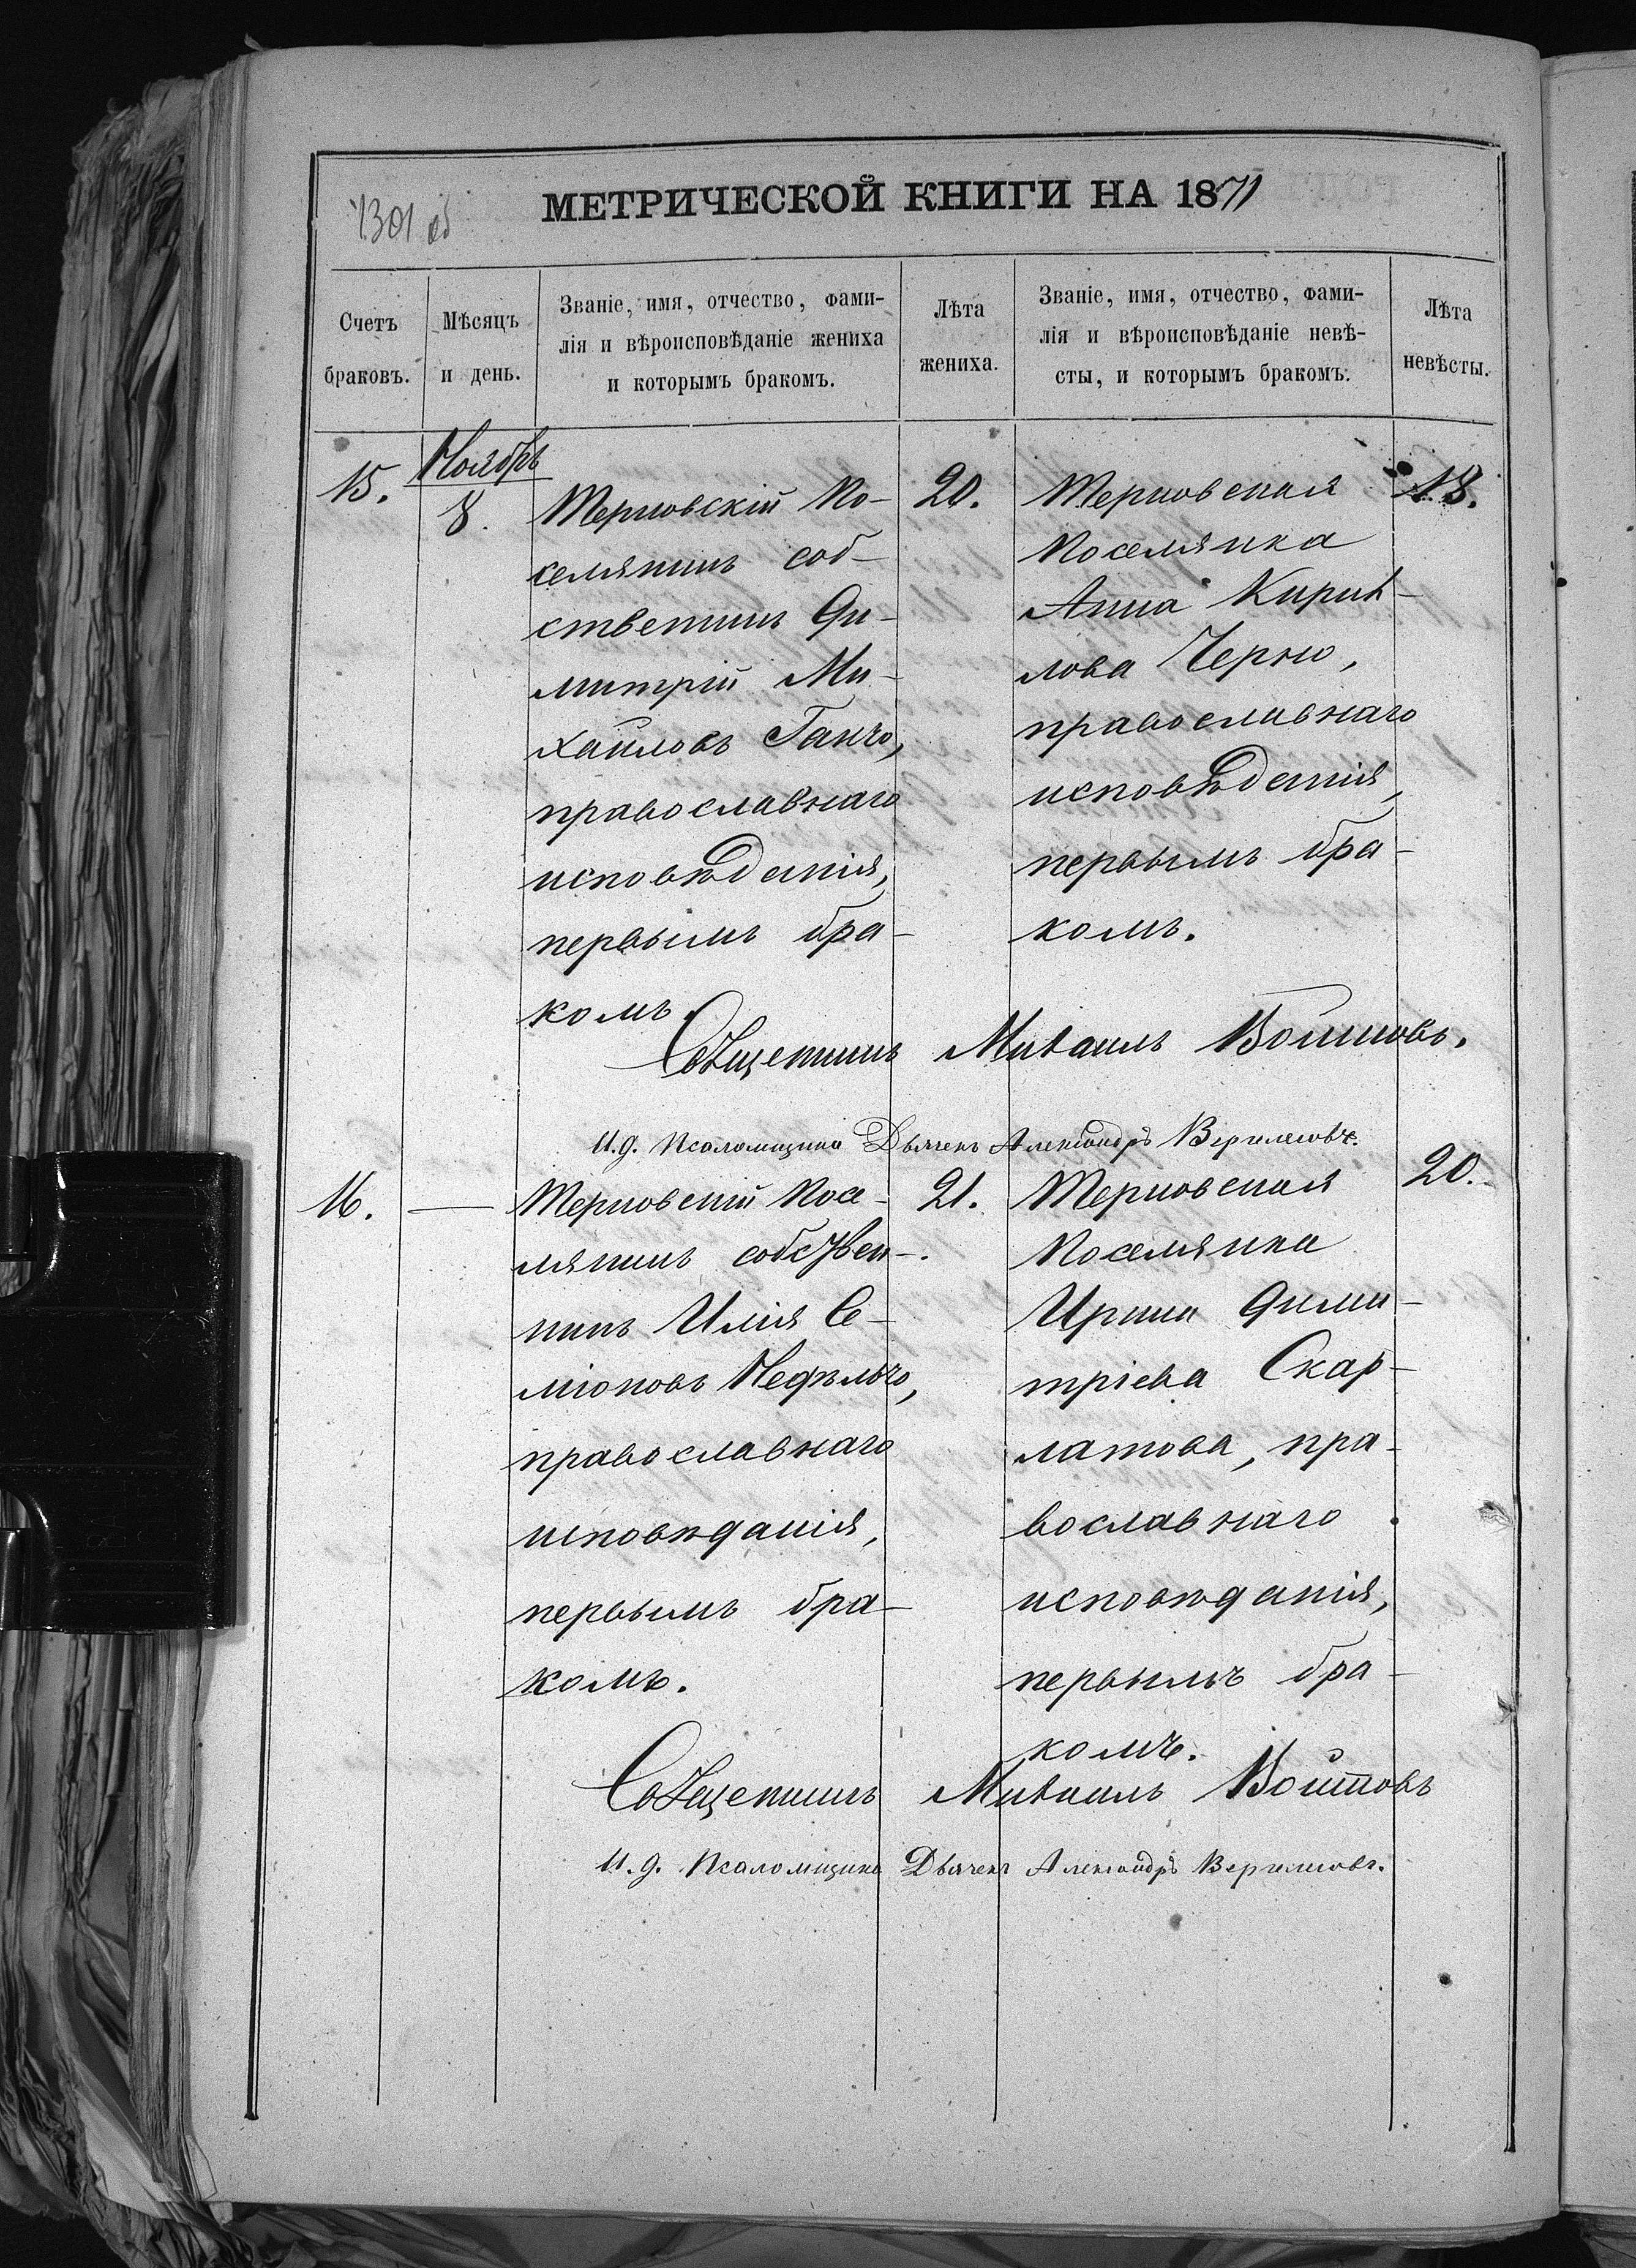 1301 об
МЕТРИЧЕСКОЙ КНИГИ НА 1871
Счетъ браковъ.
Мѣсяцъ и день.
Званіе, имя, отчество, фами-
лія и вѣроисповѣданіе жениха
и которымъ бракомъ.
Лѣта жениха.
Званіе, имя, отчество, фами-
лія и вѣроисповѣданіе невѣ-
сты, и которымъ бракомъ.
Лѣта невѣсты.
15.
Ноябрь
8.
Терновскій по-
селянинъ соб-
ственникъ Ди-
митрій Ми-
хайловъ Ганчо,
православнаго
исповѣданія,
первымъ бра-
комъ.
20.
Терновская
поселянка
Анна Кирил-
лова Черно,
православнаго
исповѣданія,
первымъ бра-
комъ.
18.
Священникъ Михаилъ Войновъ.
И.д. Псаломщика Дьячекъ Александръ
16. —
Терновскій посе-
лянинъ собствен-
никъ Илія Се-
міоновъ
православнаго
исповѣданія,
первымъ бра-
комъ.
21.
Терновская
поселянка
Ирина Дими-
тріева Скар-
латова, пра-
вославнаго
исповѣданія,
первымъ бра-
комъ.
20.
Священникъ Михаилъ Войновъ
И.д. Псаломщика Дьячекъ Александръ